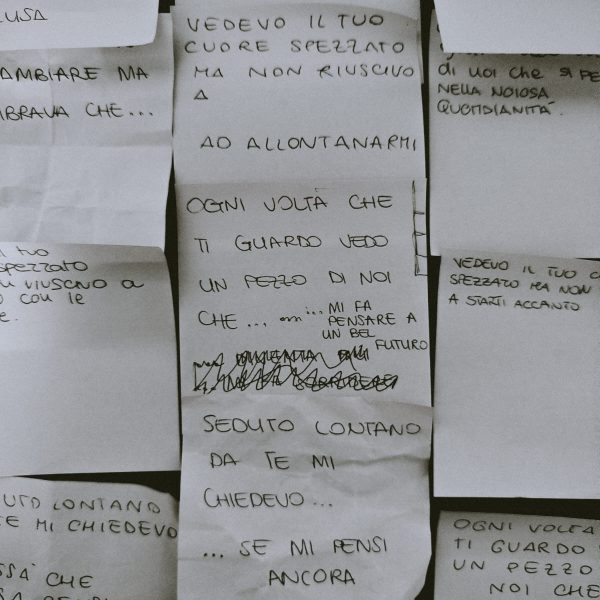 USA
AMBIARE MA
MBRAVA CHE...
VEDEVO IL TUO
CUORE SPEZZATO
MA NON RIUSCIVO
A
AD ALLONTANARMI
di noi che si
NELLA NOIOSA
QUOTIDIANITÀ.
OGNI VOLTA CHE
TI GUARDO VEDO
UN PEZZO DI NOI
CHE... ... MI FA
PENSARE A
UN BEL
FUTURO
tuo
spezzato
riuscivo a
con le
VEDEVO IL TUO
SPEZZATO MA NON
A STARTI ACCANTO
SEDUTO LONTANO
DA TE MI
CHIEDEVO...
... SE MI PENSI
ANCORA
UTO LONTANO
TE MI CHIEDEVO
SSÀ CHE
OGNI VOLTA
TI GUARDO
UN PEZZO
NOI CHE